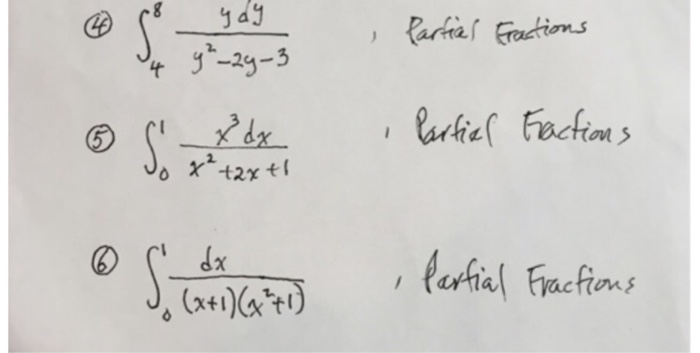 ④ ∫₄⁸ y dy / (y²-2y-3) , Partial Fractions
⑤ ∫₀¹ x³ dx / (x²+2x+1) , Partial Fractions
⑥ ∫₀¹ dx / ((x+1)(x²+1)) , Partial Fractions